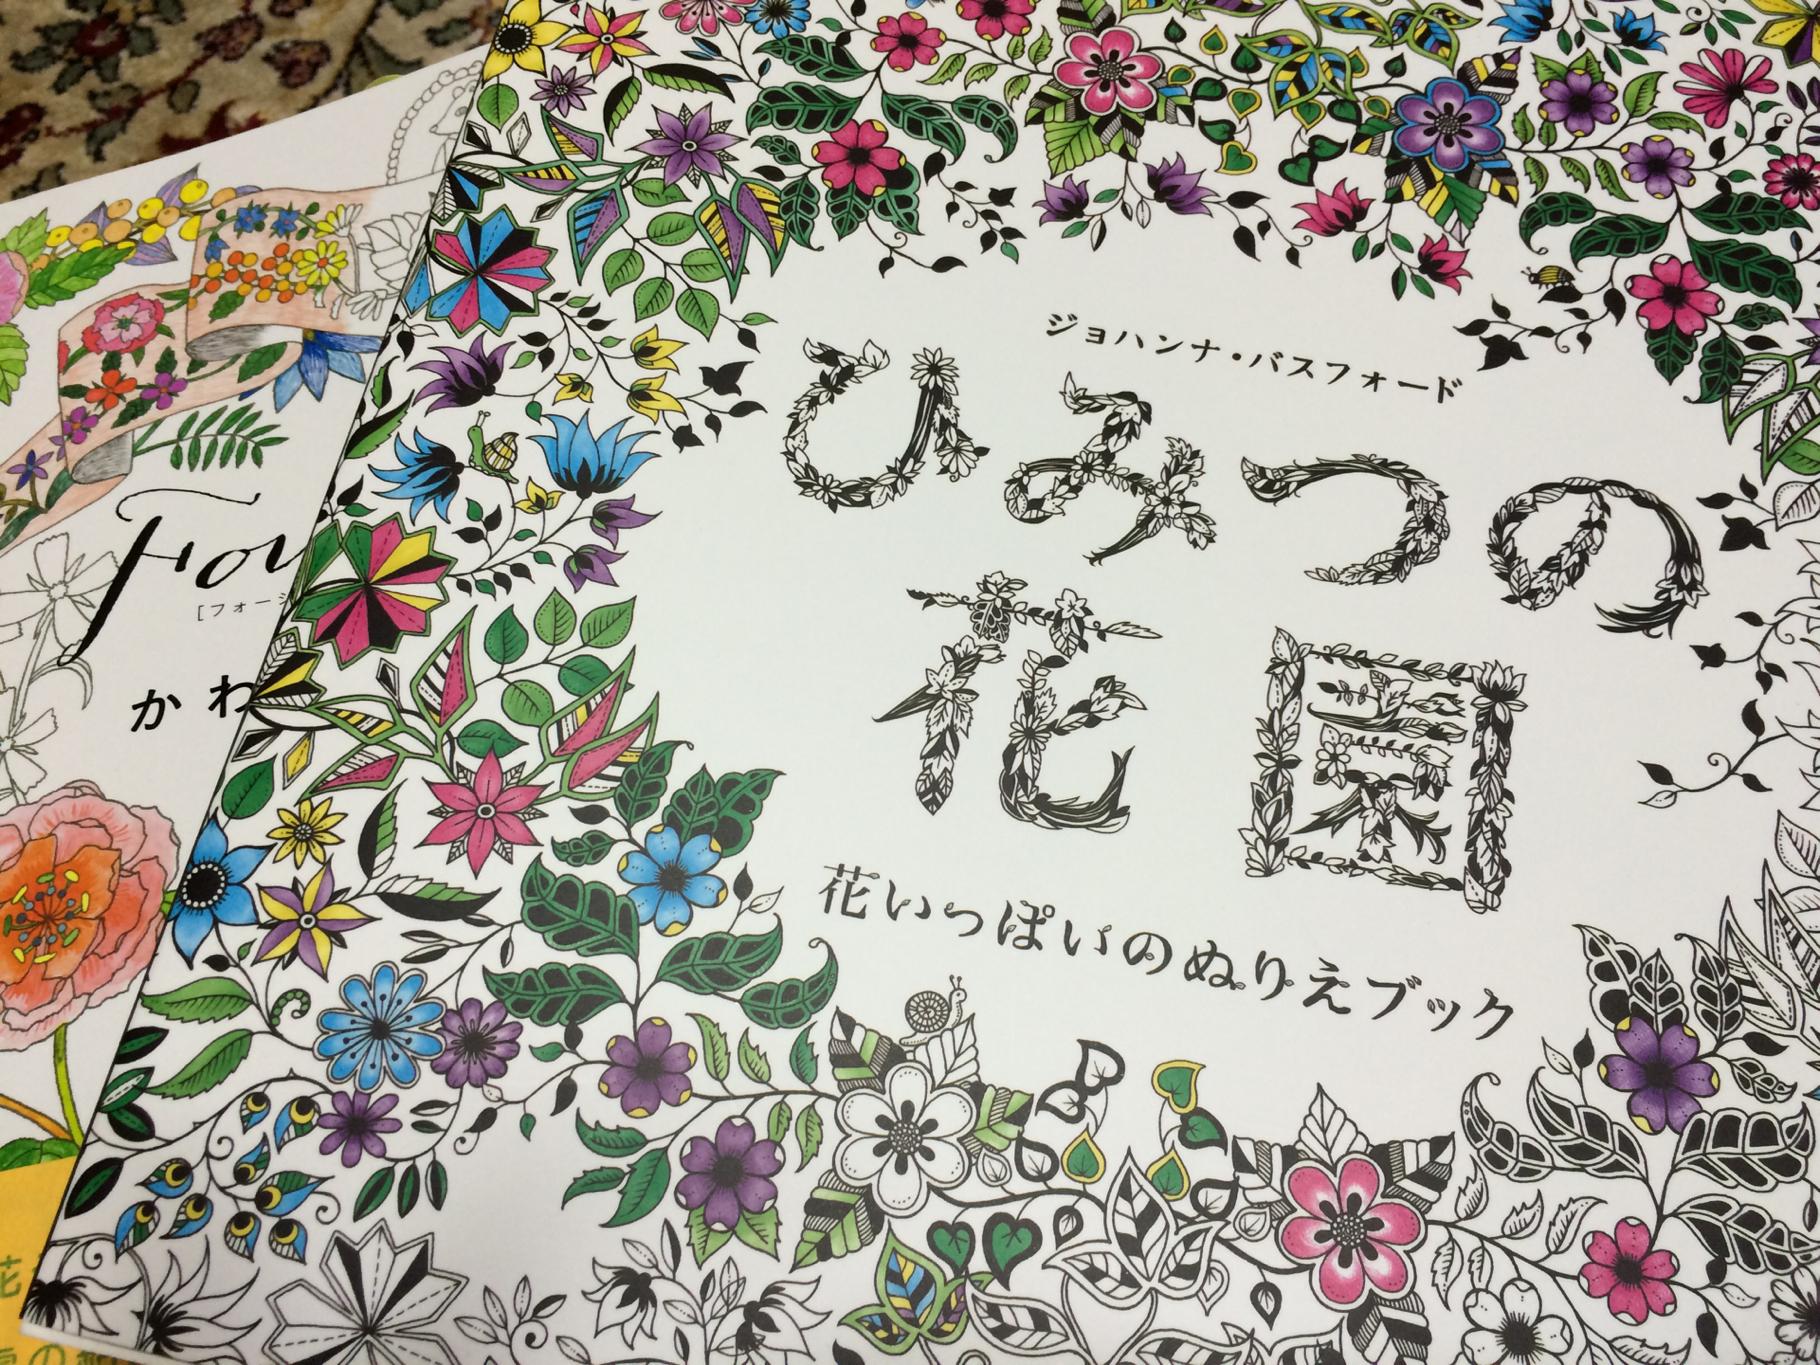 ジョハンナ・バスフォード
ひみつの
花園
花いっぱいのぬりえブック
Fou
[フォーシ
かわ
花